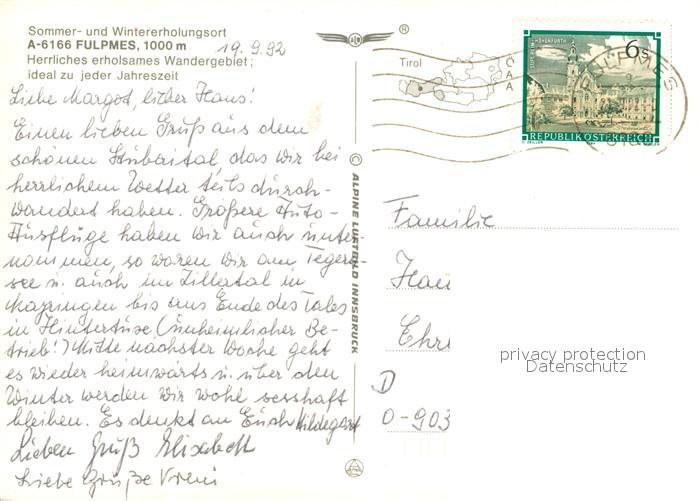 Sommer- und Wintererholungsort
A-6166 FULPMES, 1000 m
19.9.92
Herrliches erholsames Wandergebiet;
ideal zu jeder Jahreszeit
Liebe Margot, lieber Hans!
Einen lieben Gruß aus dem
schönen Stubaital, das wir bei
herrlichem Wetter teils durch-
wandert haben. Größere Auto-
Ausflüge haben wir auch unter-
nommen, so waren wir am Tegern-
see u. auch im Zillertal in
bis ans Ende des Tales
in Hintertuxe (unheimlicher Be-
trieb!) Mitte nächster Woche geht
es wieder heimwärts u. über den
Winter werden wir wohl sesshaft
bleiben. Es denkt an Euch Hildegard
Lieben Gruß Elisabeth
Liebe Grüße Vreni
© ALPINE LUFTBILD INNSBRUCK
®
Tirol
ÖAA
6s
REPUBLIK ÖSTERREICH
FULPMES
Familie
Han
Ehr
D
O-903
privacy protection
Datenschutz